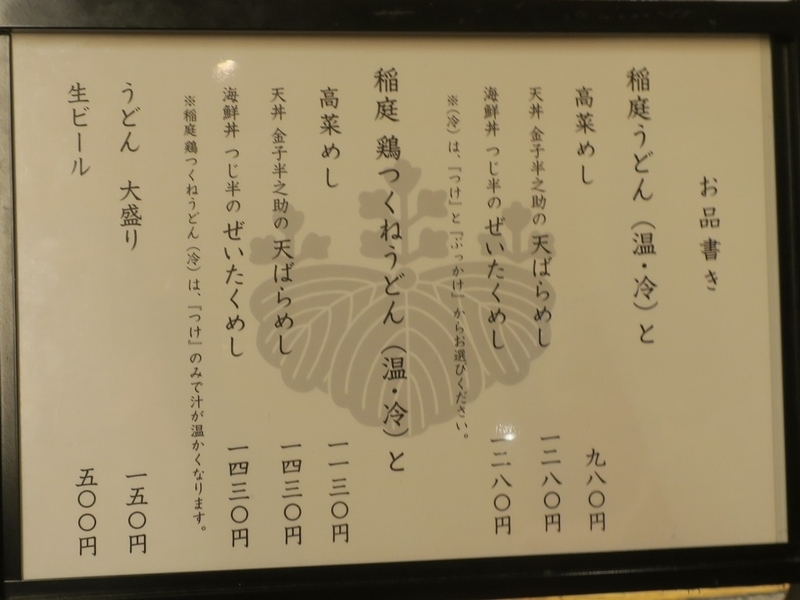 お品書き
稲庭うどん（温・冷）と
高菜めし 九八〇円
天丼 金子半之助の 天ばらめし 一二八〇円
海鮮丼 つじ半の ぜいたくめし 一二八〇円
※（冷）は、『つけ』と『ぶっかけ』からお選びください。
稲庭 鶏つくねうどん（温・冷）と
高菜めし 一一三〇円
天丼 金子半之助の 天ばらめし 一四三〇円
海鮮丼 つじ半の ぜいたくめし 一四三〇円
※稲庭 鶏つくねうどん（冷）は、『つけ』のみで汁が温かくなります。
うどん 大盛り 一五〇円
生ビール 五〇〇円